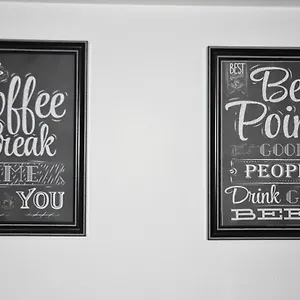 offee
reak
ME
YOU
BEST
Be
Poin
GOO
PEOPL
Drink G
BEE